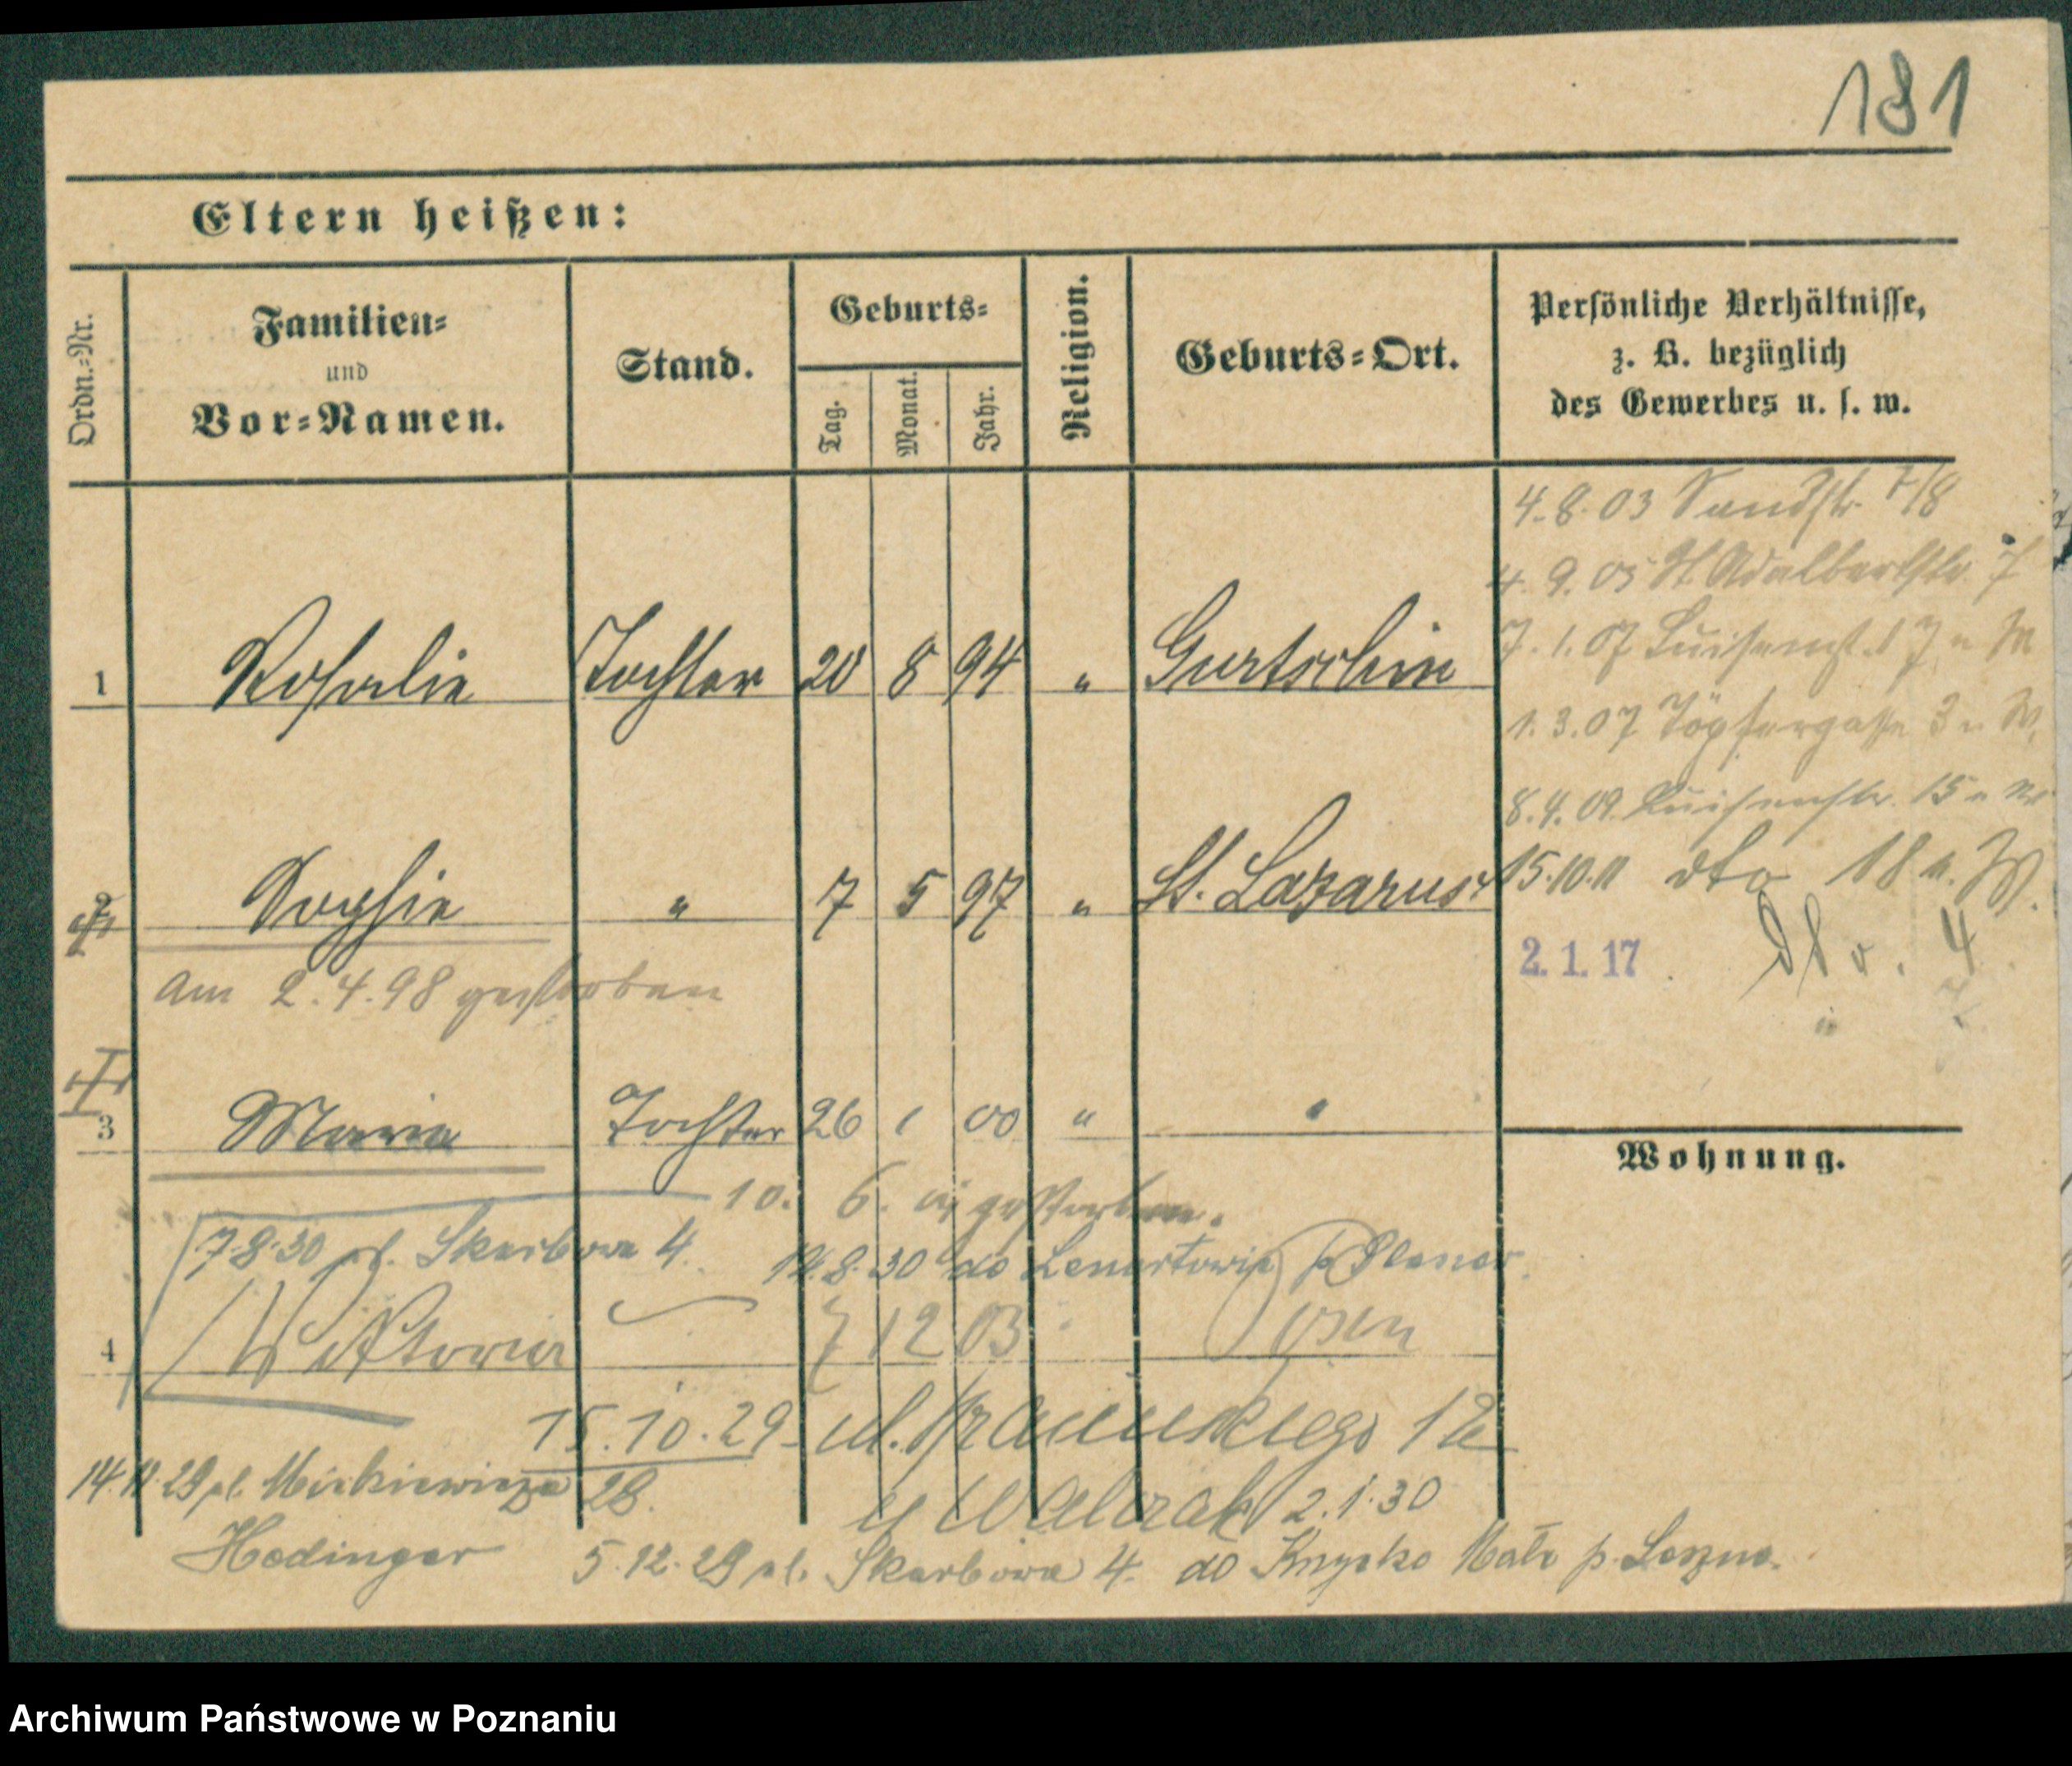 181
Eltern heißen:
Ordn.-Nr.
Familien- und Vor-Namen.
Stand.
Geburts-
Tag.
Monat.
Jahr.
Religion.
Geburts-Ort.
Persönliche Verhältnisse,
z. B. bezüglich
des Gewerbes u. s. w.
4.8.03 Sandstr. 7/8
4.9.05 St Adalbertstr. 7
7.1.07 Luisenst. 17 n W
1 Rosalie Tochter 20 8 94 " Gurtschin
1.3.07 Töpfergasse 3 n W.
8.4.09 Luisenstr. 15 n W
2 Sophie " 7 5 97 " St. Lazarus
15.10.11 dto 18 n. W.
am 2.4.98 gestorben
2.1.17. dto. 4
3 Maria Tochter 26 1 00 " "
Wohnung.
10. 6. gestorben.
7.8.30 pl. Skarbowa 4. 14.8.30 do
4 Wiktoria 7 12 03 Posen
15.10.29 ul. 12
14. 29 pl. Mickiewicza 28.
u Walczak 2.1.30
Hedinger 5.12.29 pl. Skarbowa 4. do Małe p. Leszno.
Archiwum Państwowe w Poznaniu